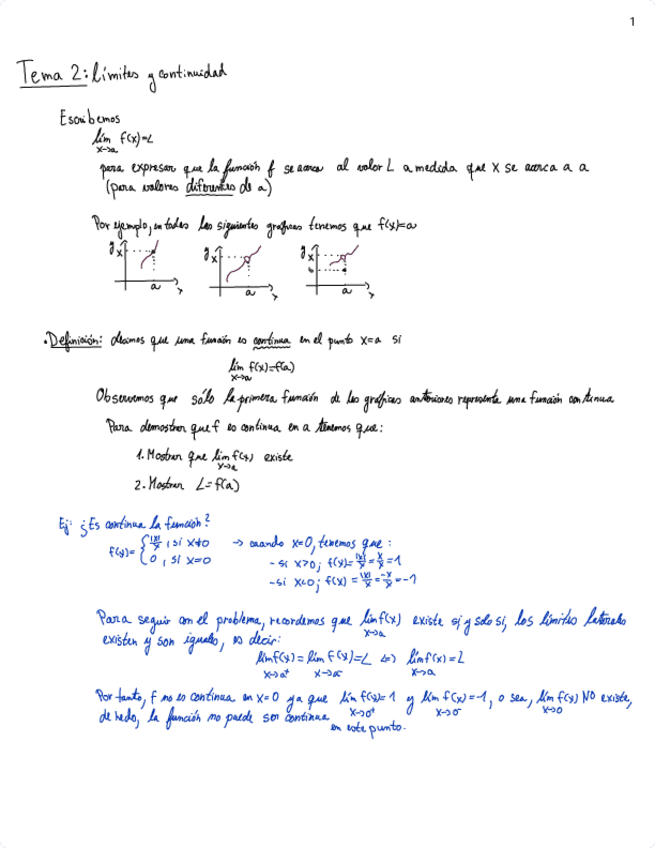 1
Tema 2: Límites y continuidad
Escribimos
lím f(x)=L
x→a
para expresar que la función f se acerca al valor L a medida que x se acerca a a
(para valores diferentes de a)
Por ejemplo, en todas las siguientes gráficas tenemos que f(x)=a
y x a x y x a x y x a x
• Definición: decimos que una función es continua en el punto x=a si
lím f(x)=f(a)
x→a
Observemos que sólo la primera función de las gráficas anteriores representa una función continua
Para demostrar que f es continua en a tenemos que:
1. Mostrar que lím f(x) existe
x→a
2. Mostrar L=f(a)
Ej: ¿Es continua la función?
f(x)= { |x|/x , si x≠0 → cuando x=0, tenemos que:
0 , si x=0 - si x>0; f(x)= |x|/x = x/x = 1
- si x<0; f(x) = |x|/x = -x/x = -1
Para seguir con el problema, recordemos que lím f(x) existe si y solo si, los límites laterales
x→a
existen y son iguales, es decir:
lím f(x) = lím f(x)=L ⇔ lím f(x) = L
x→a⁺ x→a⁻ x→a
Por tanto, f no es continua en x=0 ya que lím f(x)=1 y lím f(x)=-1, o sea, lím f(x) NO existe,
x→0⁺ x→0⁻ x→0
de hecho, la función no puede ser continua
en este punto.